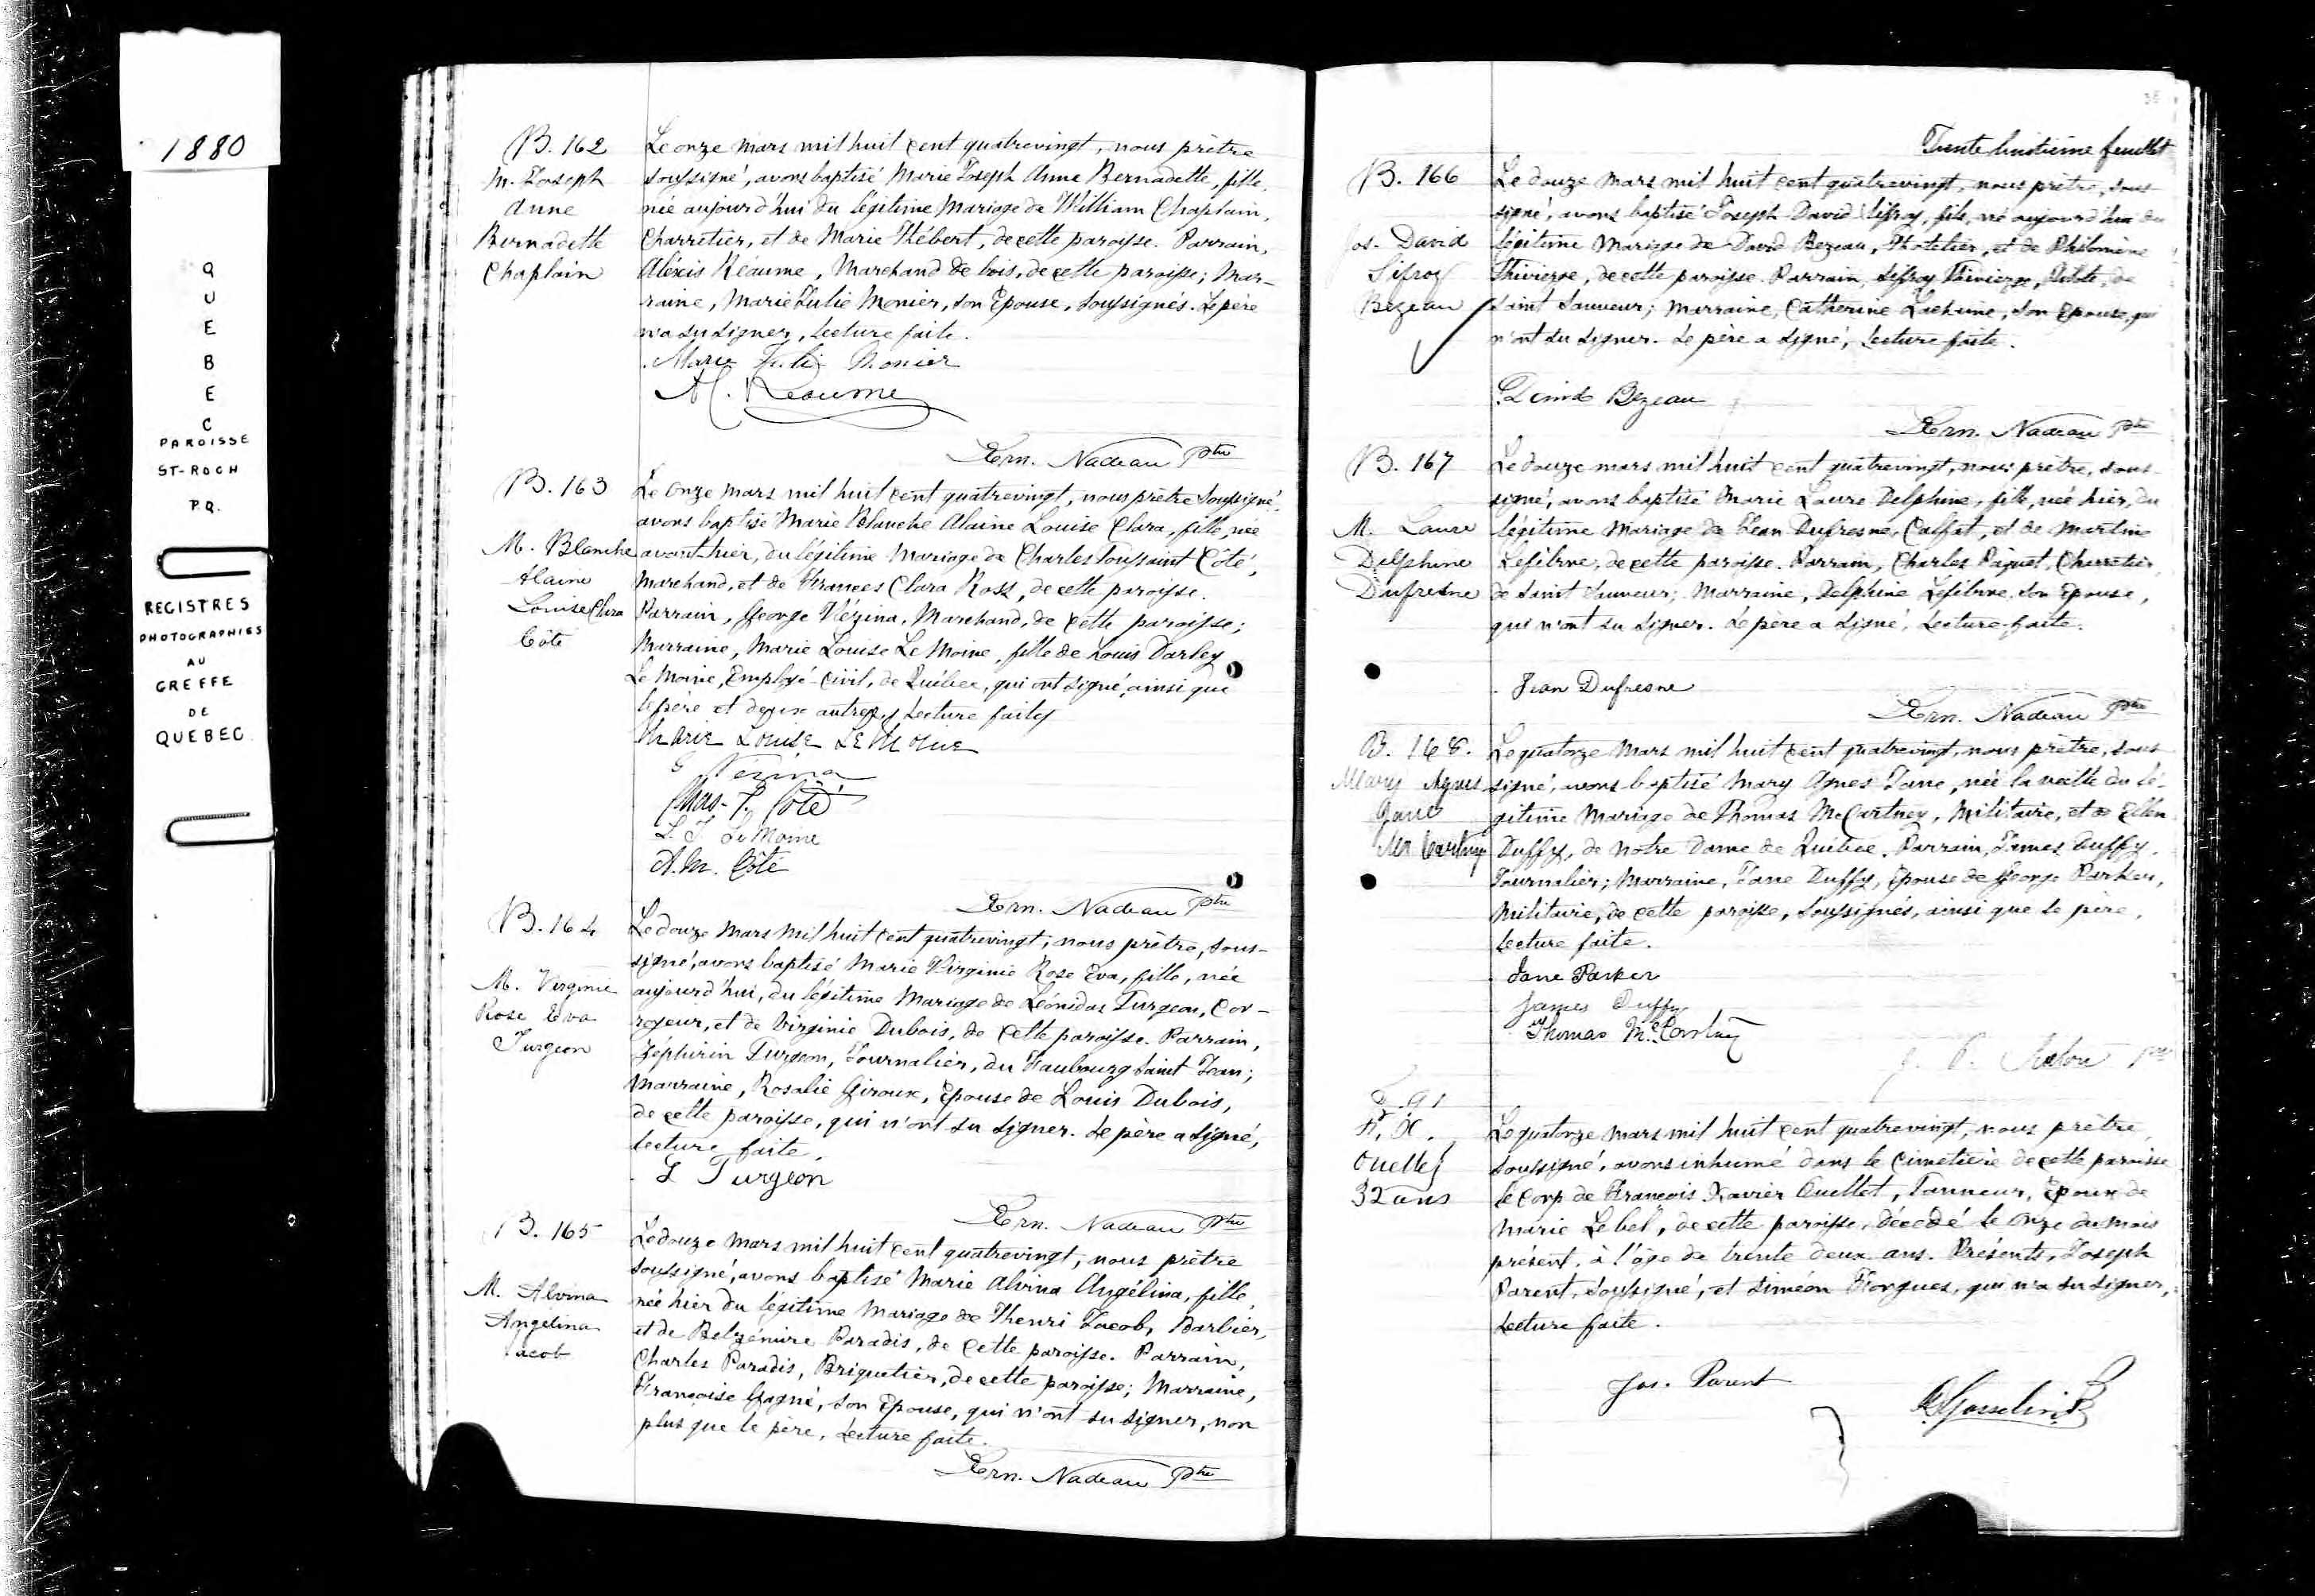 1880
QUEBEC
PAROISSE
ST-ROCH
P.Q.
REGISTRES
PHOTOGRAPHIES
AU
GREFFE
DE
QUEBEC
B. 162
M. Joseph
Anne
Bernadette
Chaplain
Le onze mars mil huit cent quatrevingt, nous prêtre
soussigné, avons baptisé Marie Joseph Anne Bernadette, fille,
née aujourd'hui du légitime mariage de William Chaplain,
Charretier, et de Marie Hébert, de cette paroisse. Parrain,
Aléxis Réaume, Marchand de bois, de cette paroisse; Mar-
raine, Marie Julie Monier, son Epouse, soussignés. Le père
n'a su signer, lecture faite.
Marie Julie Monier
A. Reaume
Fern. Nadeau Ptre
B. 163
M. Blanche
Alaine
Louise Clara
Côté
Le onze mars mil huit cent quatrevingt, nous prêtre soussigné,
avons baptisé Marie Blanche Alaine Louise Clara, fille, née
avant hier, du légitime mariage de Charles Toussaint Côté,
Marchand, et de Frances Clara Ross, de cette paroisse.
Parrain, George Vézina, Marchand, de cette paroisse;
Marraine, Marie Louise Le Moine, fille de Louis Darley
Le Moine, Employé-Civil, de Québec, qui ont signé, ainsi que
le père et deux autres, lecture faite
Marie Louise LeMoine
G Vézina
Chas. T. Côté
L. LeMoine
A. M. Côté
Fern. Nadeau Ptre
B. 164
M. Virginie
Rose Eva
Turgeon
Le douze mars mil huit cent quatrevingt, nous prêtre, sous-
signé, avons baptisé Marie Virginie Rose Eva, fille, née
aujourd'hui, du légitime mariage de Léonidas Turgeon, Cor-
royeur, et de Virginie Dubois, de cette paroisse. Parrain,
Zéphirin Turgeon, Journalier, du Faubourg Saint Jean;
Marraine, Rosalie Giroux, Epouse de Louis Dubois,
de cette paroisse, qui n'ont su signer. Le père a signé,
lecture faite.
L Turgeon
Fern. Nadeau Ptre
B. 165
M. Alvina
Angelina
Jacob
Le douze mars mil huit cent quatrevingt, nous prêtre
soussigné, avons baptisé Marie Alvina Angélina, fille,
née hier du légitime mariage de Henri Jacob, Barbier,
et de Belzémire Paradis, de cette paroisse. Parrain,
Charles Paradis, Briquetier, de cette paroisse; Marraine,
Françoise Gagné, son Epouse, qui n'ont su signer, non
plus que le père, lecture faite.
Fern. Nadeau Ptre
38
Trente huitième feuillet
B. 166
Jos. David
Sifroy
Bezeau
Le douze mars mil huit cent quatrevingt, nous prêtre, sous-
signé, avons baptisé Joseph David Sifroy, fils, né aujourd'hui du
légitime mariage de David Bezeau, Hotelier, et de Philomène
Thivierge, de cette paroisse. Parrain, Sifroy Thivierge, Pilote, de
Saint Sauveur; Marraine, Catherine Lachaine, son Epouse, qui
n'ont su signer. Le père a signé, lecture faite.
David Bezeau
Fern. Nadeau Ptre
B. 167
M. Laure
Delphine
Dufresne
Le douze mars mil huit cent quatrevingt, nous prêtre, sous-
signé, avons baptisé Marie Laure Delphine, fille, née hier, du
légitime mariage de Jean Dufresne, Calfat, et de Martine
Lefebvre, de cette paroisse. Parrain, Charles Paquet, Charretier,
de Saint Sauveur; Marraine, Delphine Lefebvre, son Epouse,
qui n'ont su signer. Le père a signé, lecture faite.
Jean Dufresne
Fern. Nadeau Ptre
B. 168.
Mary Agnes
Jane
McCartney
Le quatorze mars mil huit cent quatrevingt, nous prêtre, sous-
signé, avons baptisé Mary Agnes Jane, née la veille du lé-
gitime mariage de Thomas McCartney, Militaire, et de Ellen
Duffy, de Notre Dame de Québec. Parrain, James Duffy,
Journalier; Marraine, Jane Duffy, Epouse de George Parker,
Militaire, de cette paroisse, soussignés, ainsi que le père,
lecture faite.
Jane Parker
James Duffy
Thomas McCartney
S. 91
F. X.
Ouellet
32 ans
Le quatorze mars mil huit cent quatrevingt, nous prêtre,
soussigné, avons inhumé dans le cimetière de cette paroisse
le corp de François Xavier Ouellet, Tanneur, Epoux de
Marie Lebel, de cette paroisse, décédé le onze du mois
présent, à l'âge de trente deux ans. Présents, Joseph
Parent, soussigné, et Siméon Forgues, qui n'a su signer,
lecture faite.
Jos. Parent
Gosselin